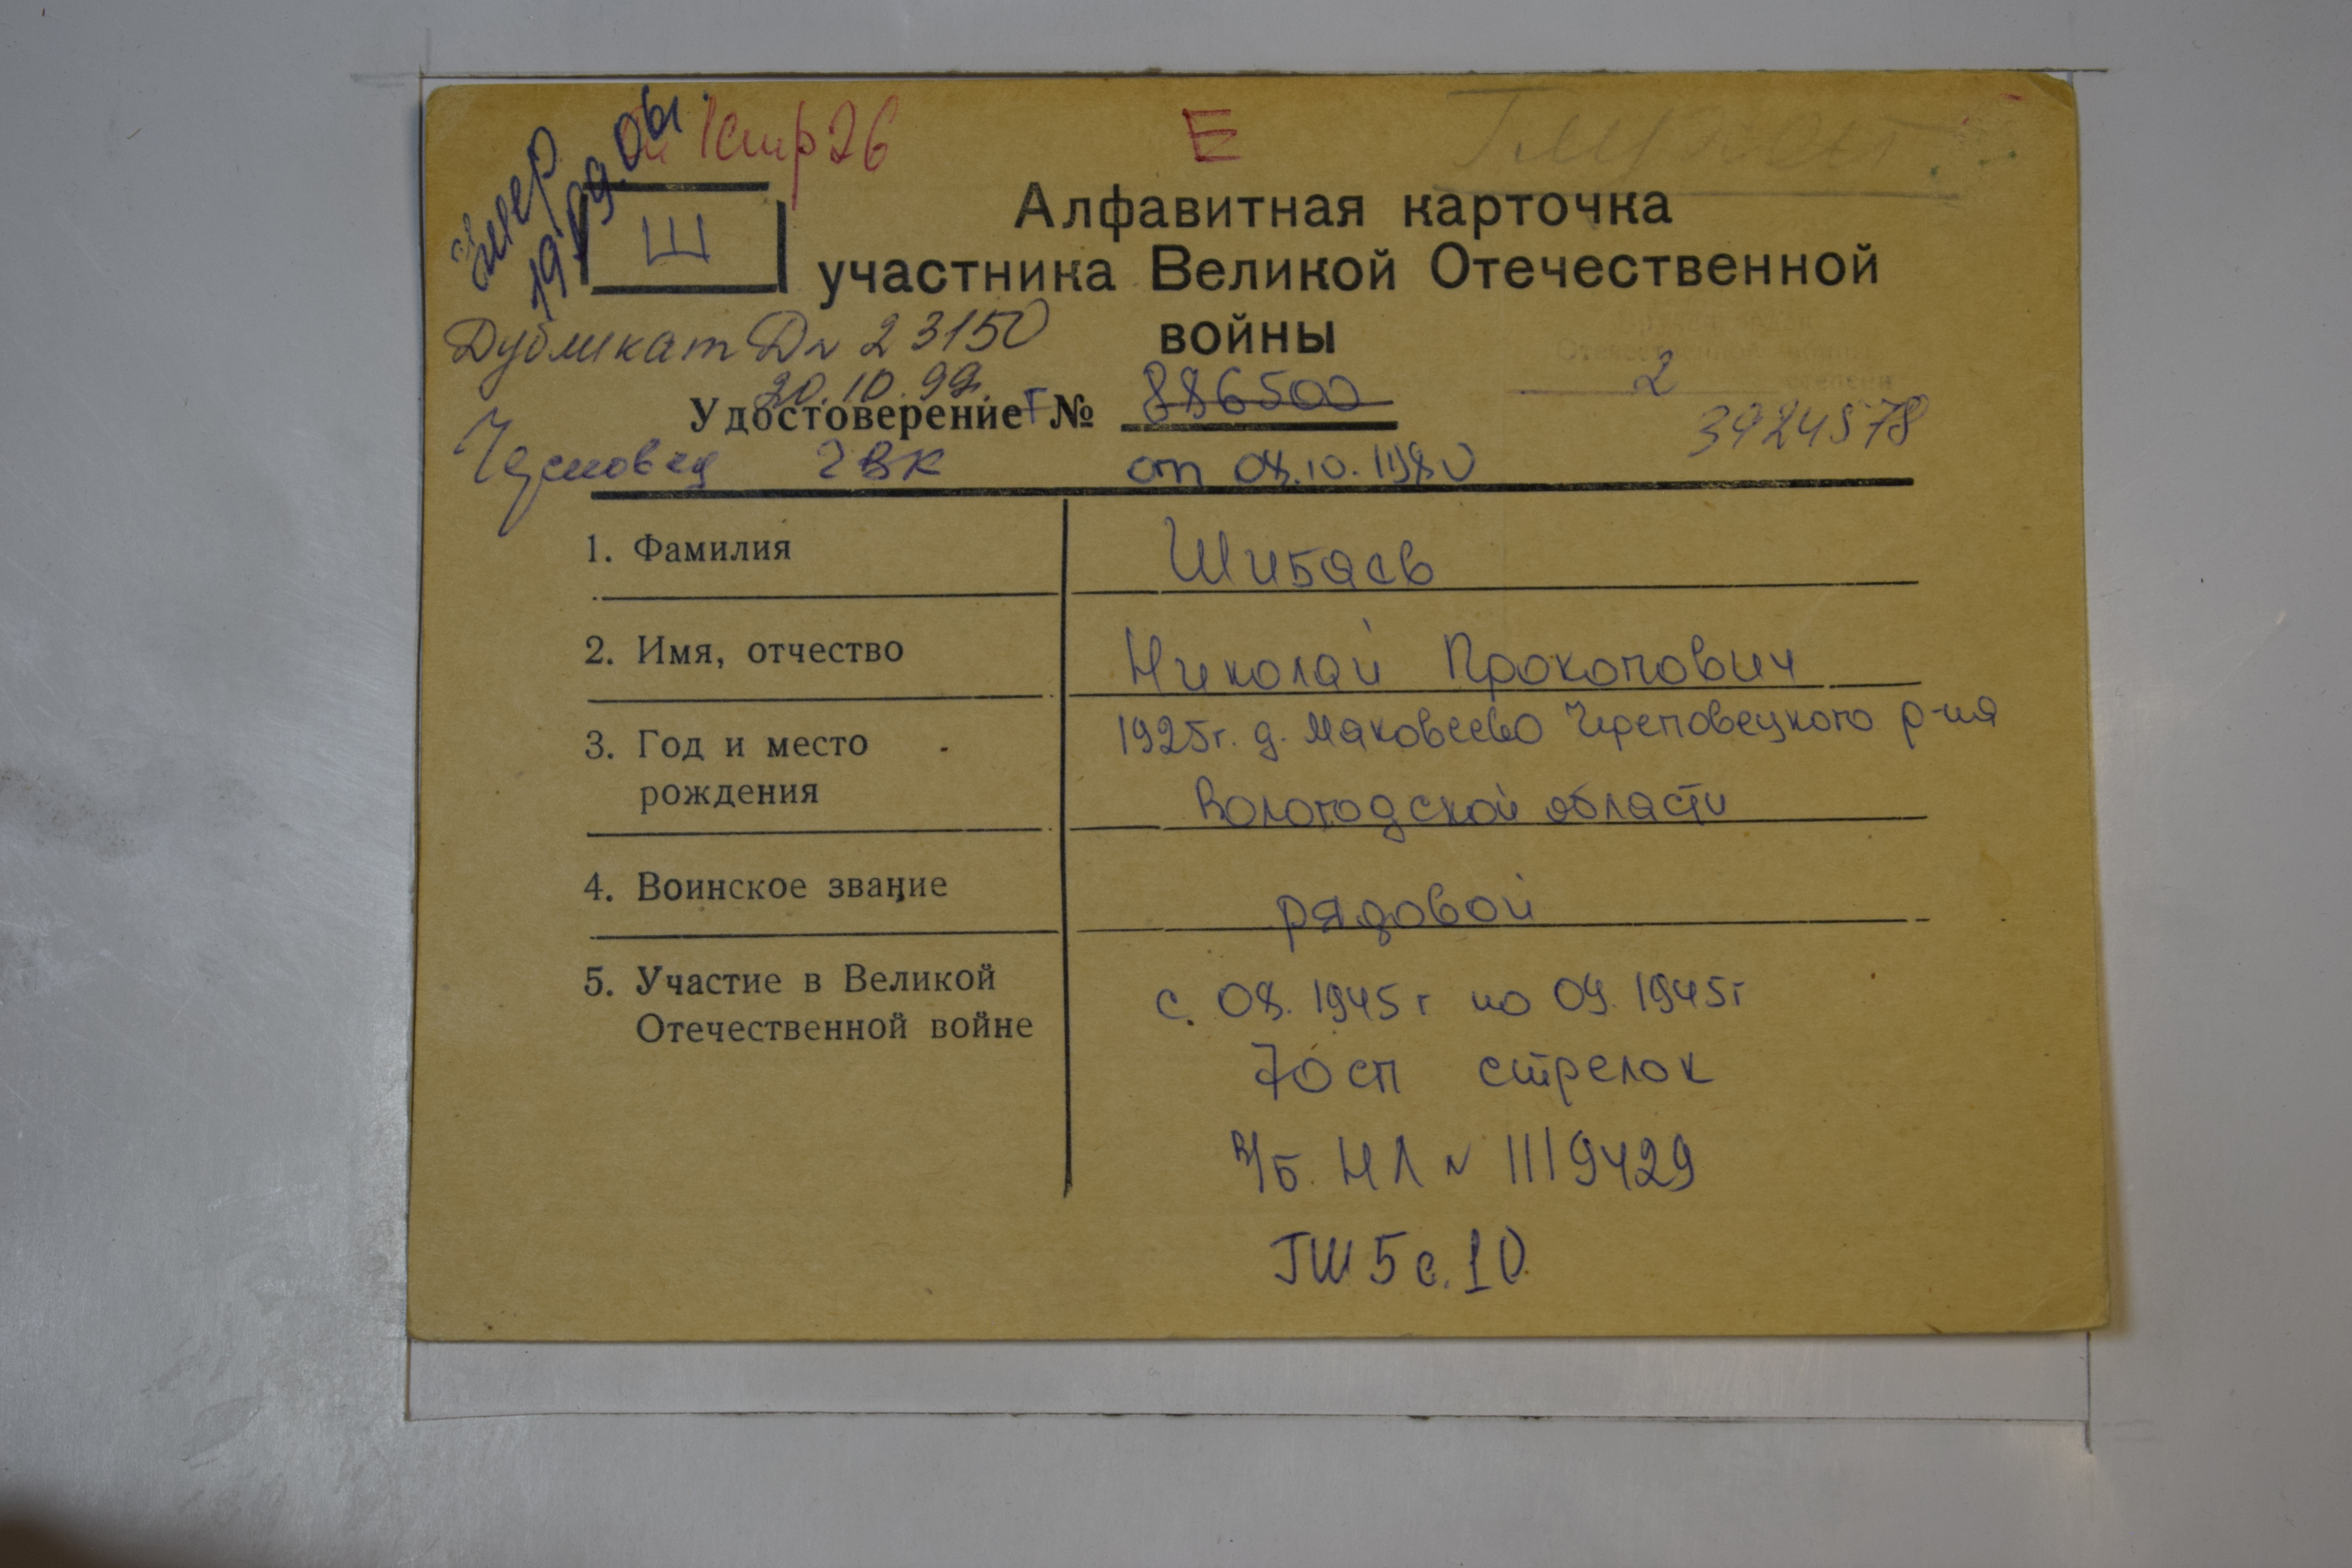 умер
19.09.01.
1 стр 26
Е
Ш
Алфавитная карточка
участника Великой Отечественной
войны
Дубликат Д № 23150
20.10.99.
Удостоверение Г № 886500
2
степени
3924578
Череповец ГВК от 08.10.1980
1. Фамилия Шибаев
2. Имя, отчество Николай Прокопович
3. Год и место 1925г. д. Маковеево Череповецкого р-на
рождения Вологодской области
4. Воинское звание рядовой
5. Участие в Великой с 08. 1945г по 09. 1945г
Отечественной войне
70 сп стрелок
в/б. НЛ № 1119429
ТШ 5 с. 10